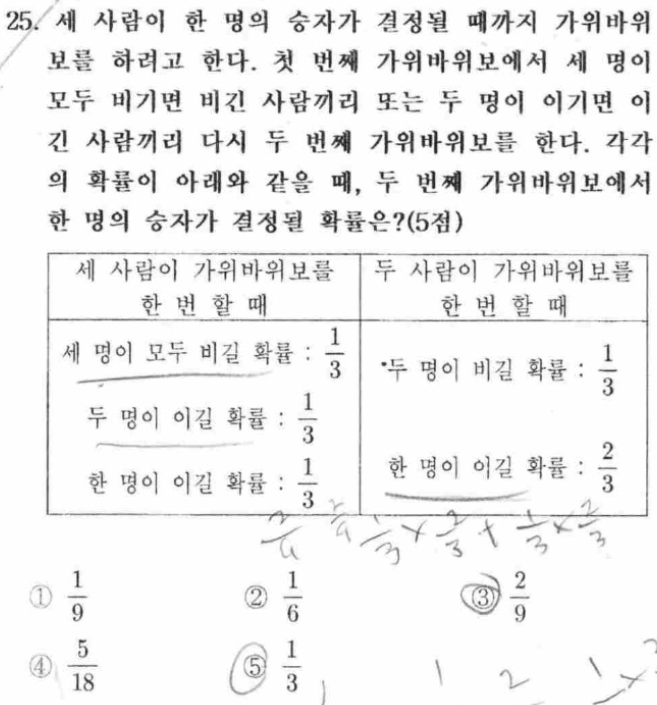 25. 세 사람이 한 명의 승자가 결정될 때까지 가위바위
보를 하려고 한다. 첫 번째 가위바위보에서 세 명이
모두 비기면 비긴 사람끼리 또는 두 명이 이기면 이
긴 사람끼리 다시 두 번째 가위바위보를 한다. 각각
의 확률이 아래와 같을 때, 두 번째 가위바위보에서
한 명의 승자가 결정될 확률은?(5점)
세 사람이 가위바위보를
한 번 할 때
두 사람이 가위바위보를
한 번 할 때
세 명이 모두 비길 확률 : 1/3
두 명이 이길 확률 : 1/3
한 명이 이길 확률 : 1/3
두 명이 비길 확률 : 1/3
한 명이 이길 확률 : 2/3
1/3 × 2/3 + 1/3 × 2/3
① 1/9
② 1/6
③ 2/9
④ 5/18
⑤ 1/3